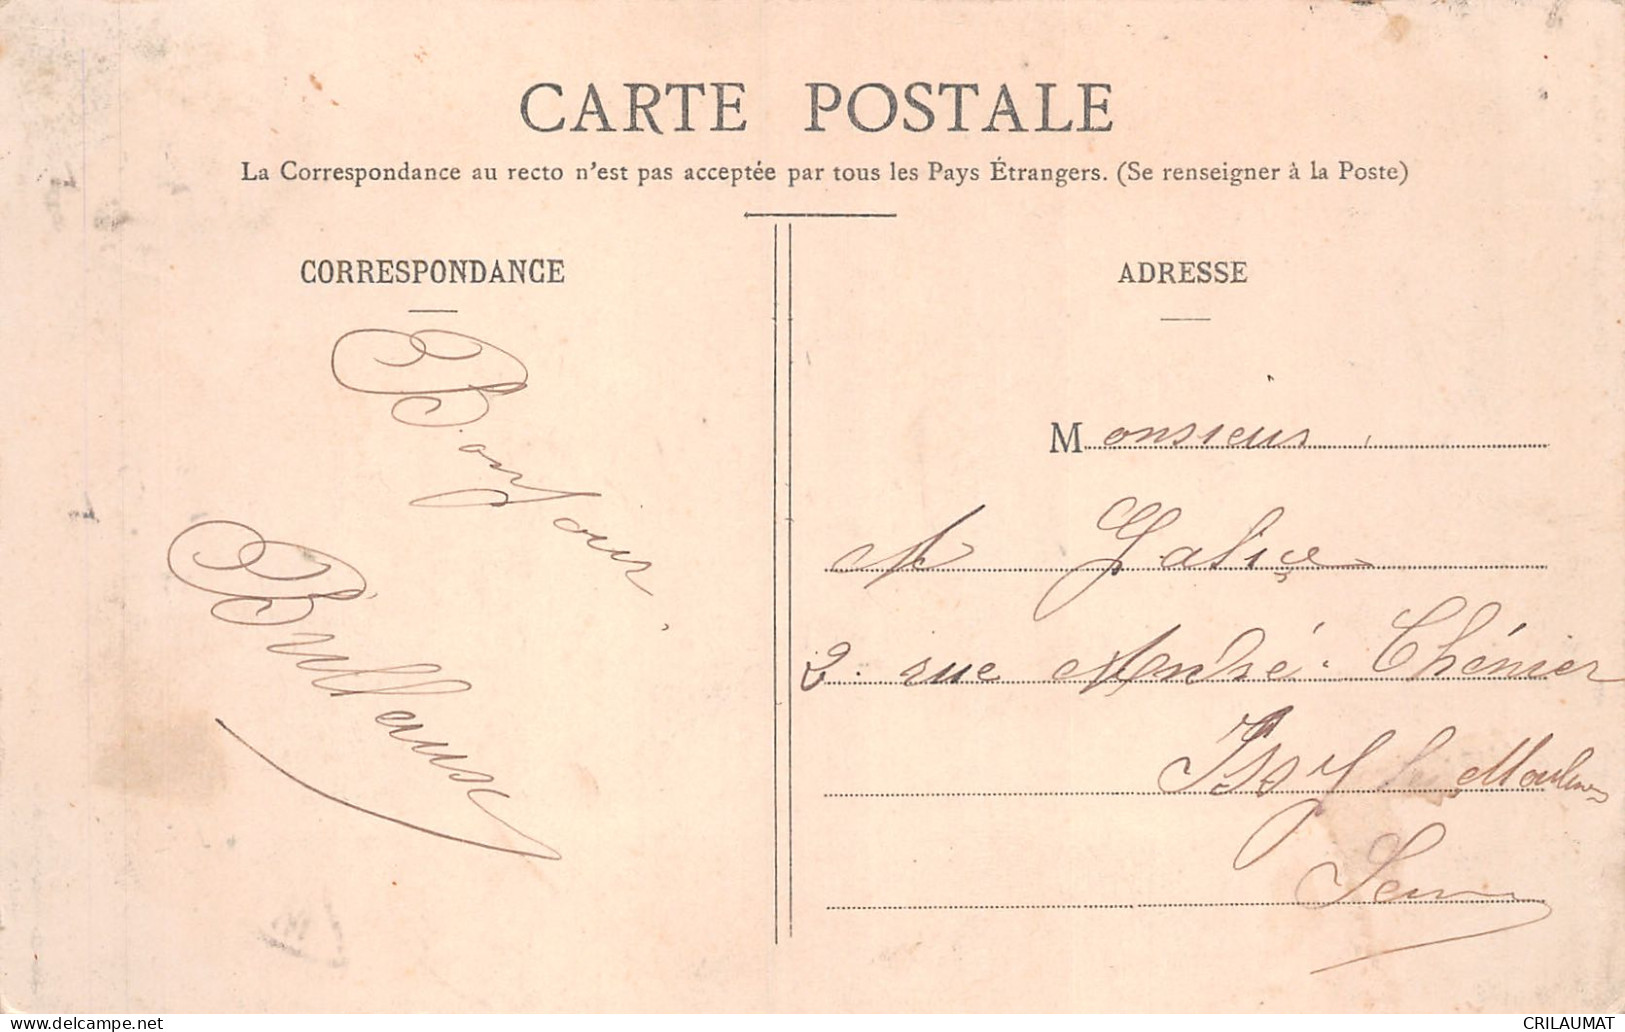 CARTE POSTALE
La Correspondance au recto n'est pas acceptée par tous les Pays Étrangers. (Se renseigner à la Poste)
CORRESPONDANCE
Bonjour
ADRESSE
Monsieur
M
2 rue André Chénier
Issy les Moulineaux
Seine
delcampe.net
CRILAUMAT